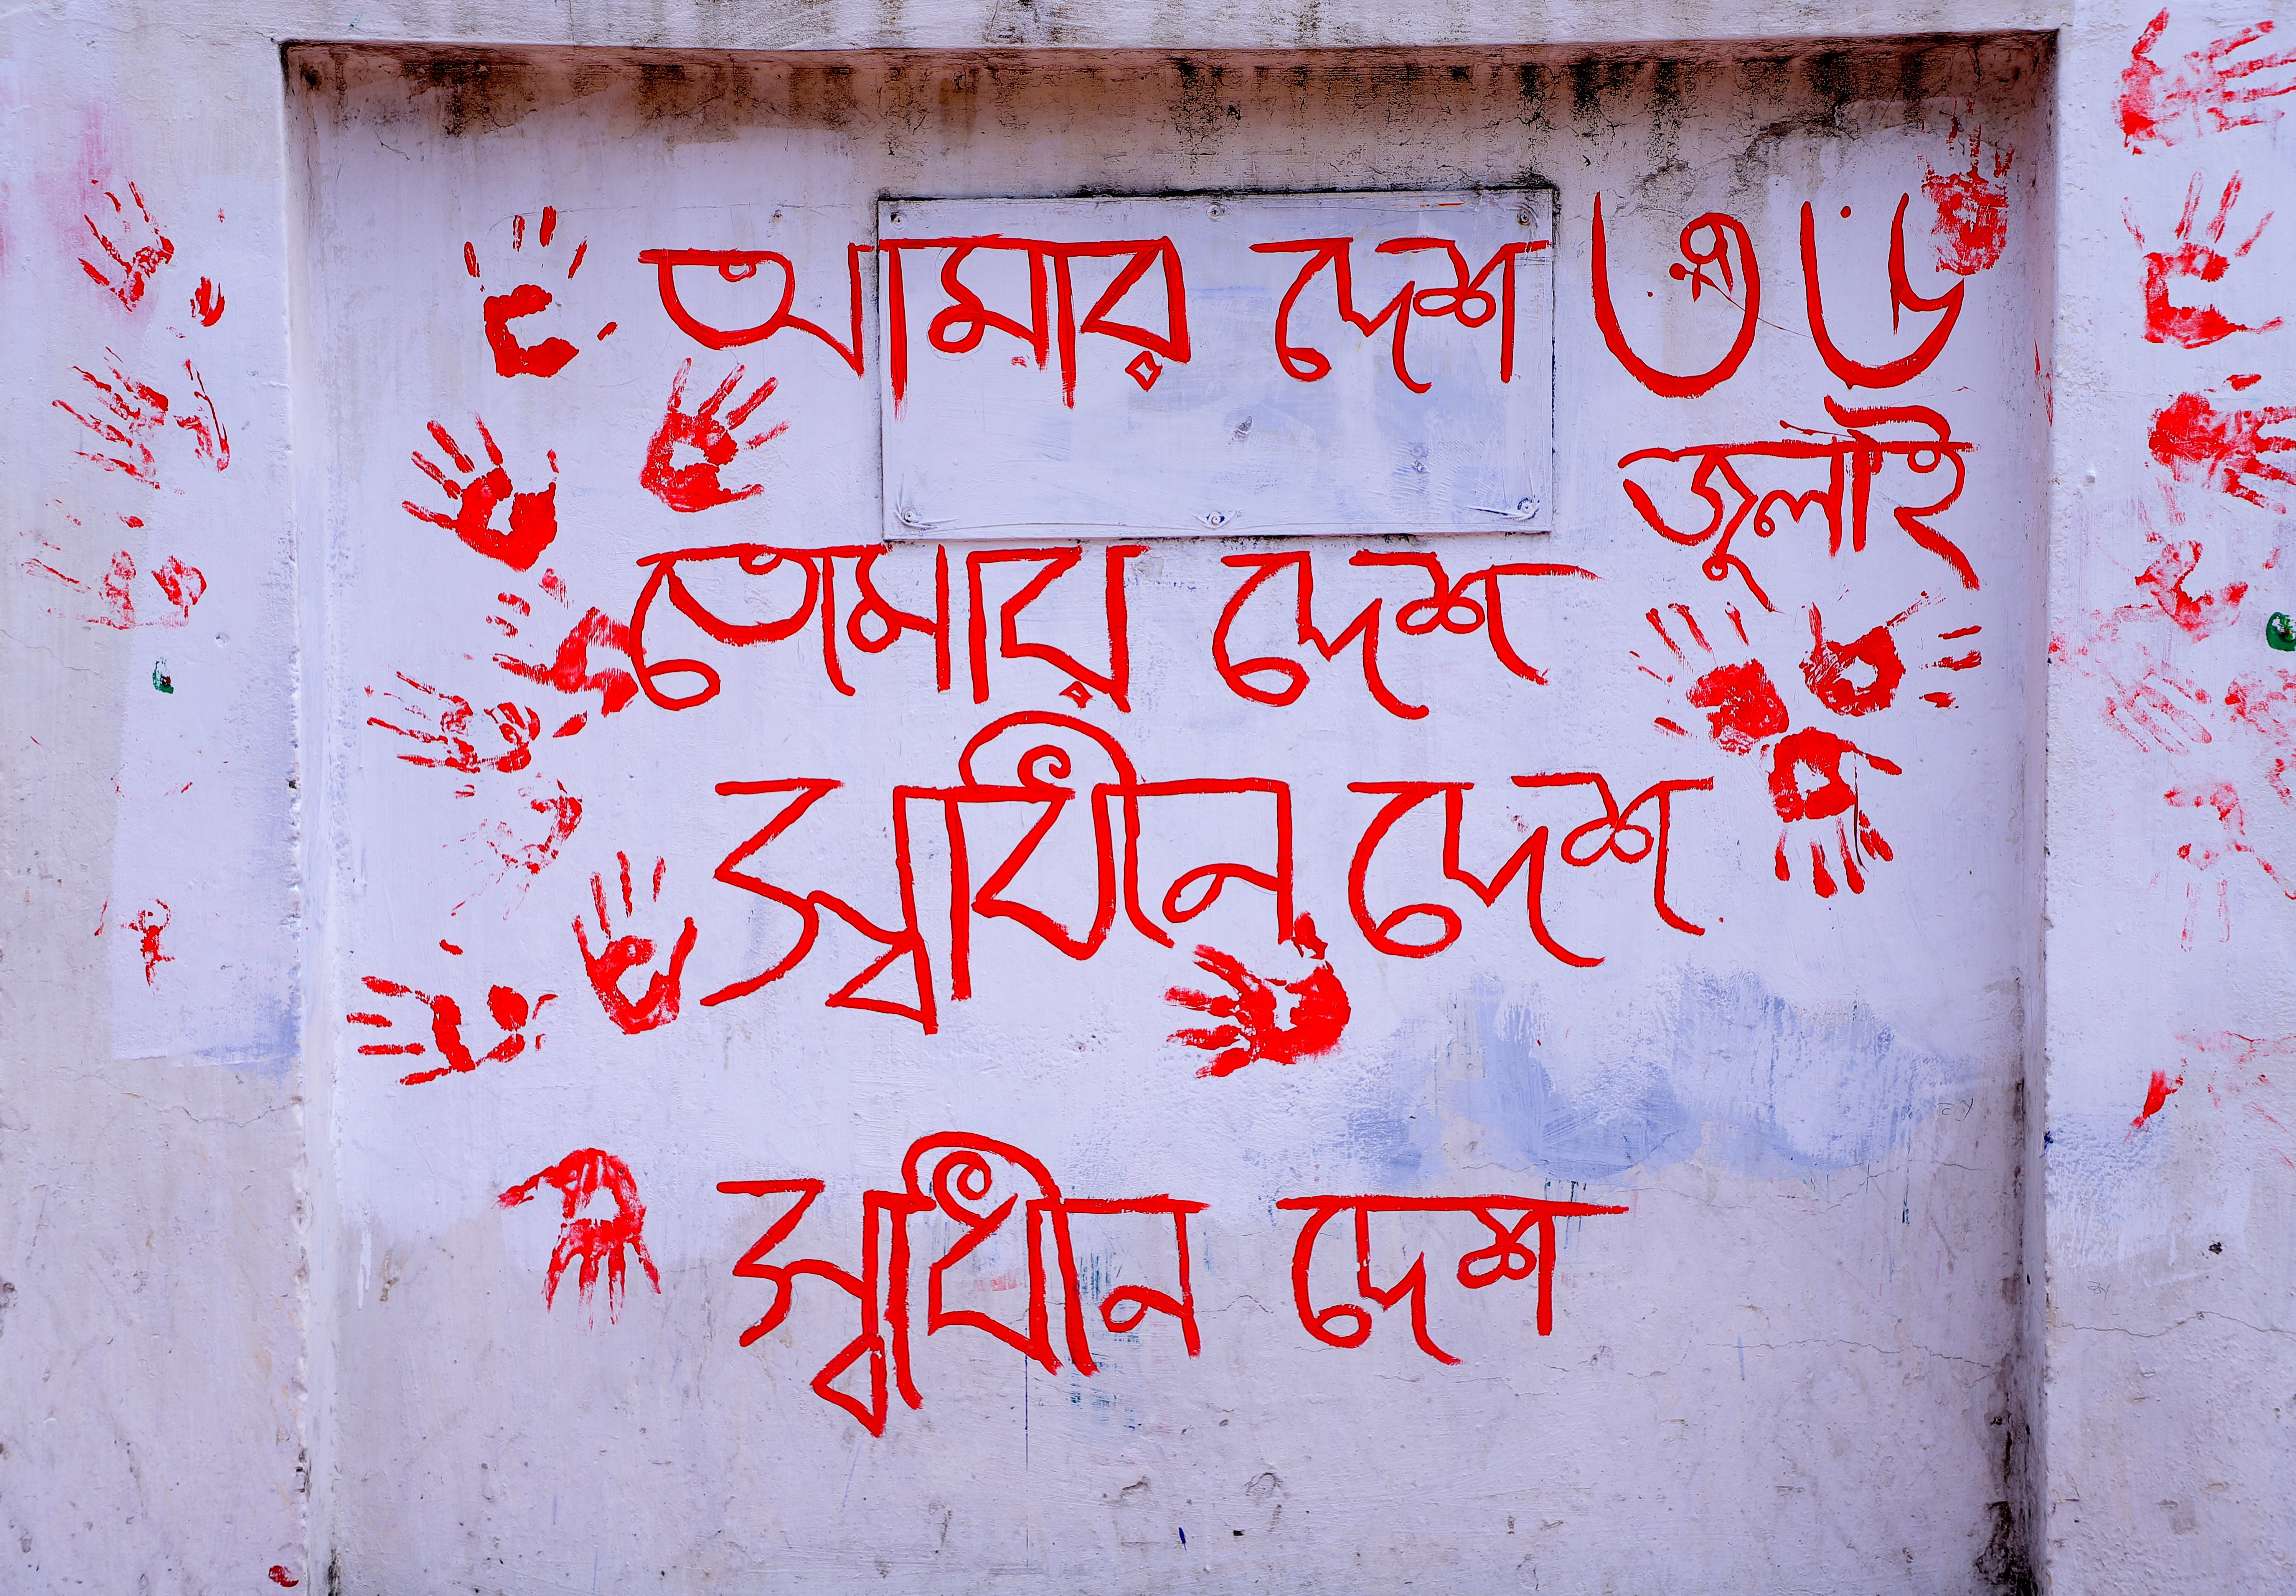 আমার দেশ ৩৬
জূলাই
তোমার দেশ
স্বাধীন দেশ
স্বাধীন দেশ